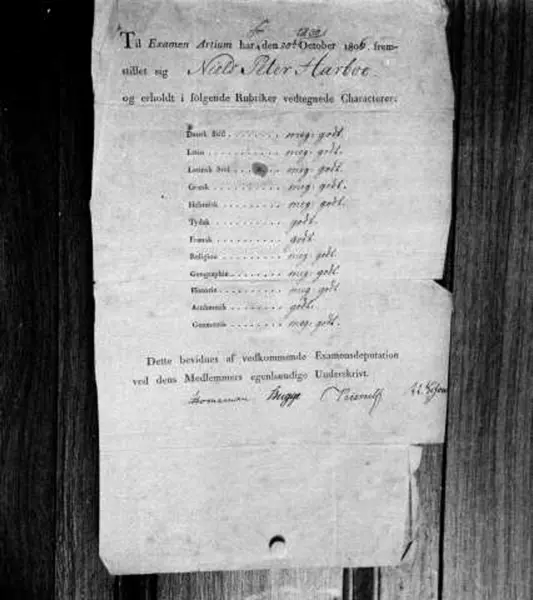 Til Examen Artium har den 20de October 1806. frem-
stillet sig Niels Peter Harboe.
og erholdt i følgende Rubriker vedtegnede Characterer:
Dansk Stiil ........ meg. godt.
Latin ........ meg. godt.
Latinsk Stiil ........ meg. godt.
Græsk ........ meg. godt.
Hebraisk ........ meg. godt.
Tydsk ........ godt.
Fransk ........ godt
Religion ........ meg. godt.
Geographie ........ meg. godt.
Historie ........ meg. godt
Arithmetik ........ godt.
Geometrie ........ meg. godt.
Dette bevidnes af vedkommende Examensdeputation
ved dens Medlemmers egenhændige Underskrivt.
Hornemann Bugge